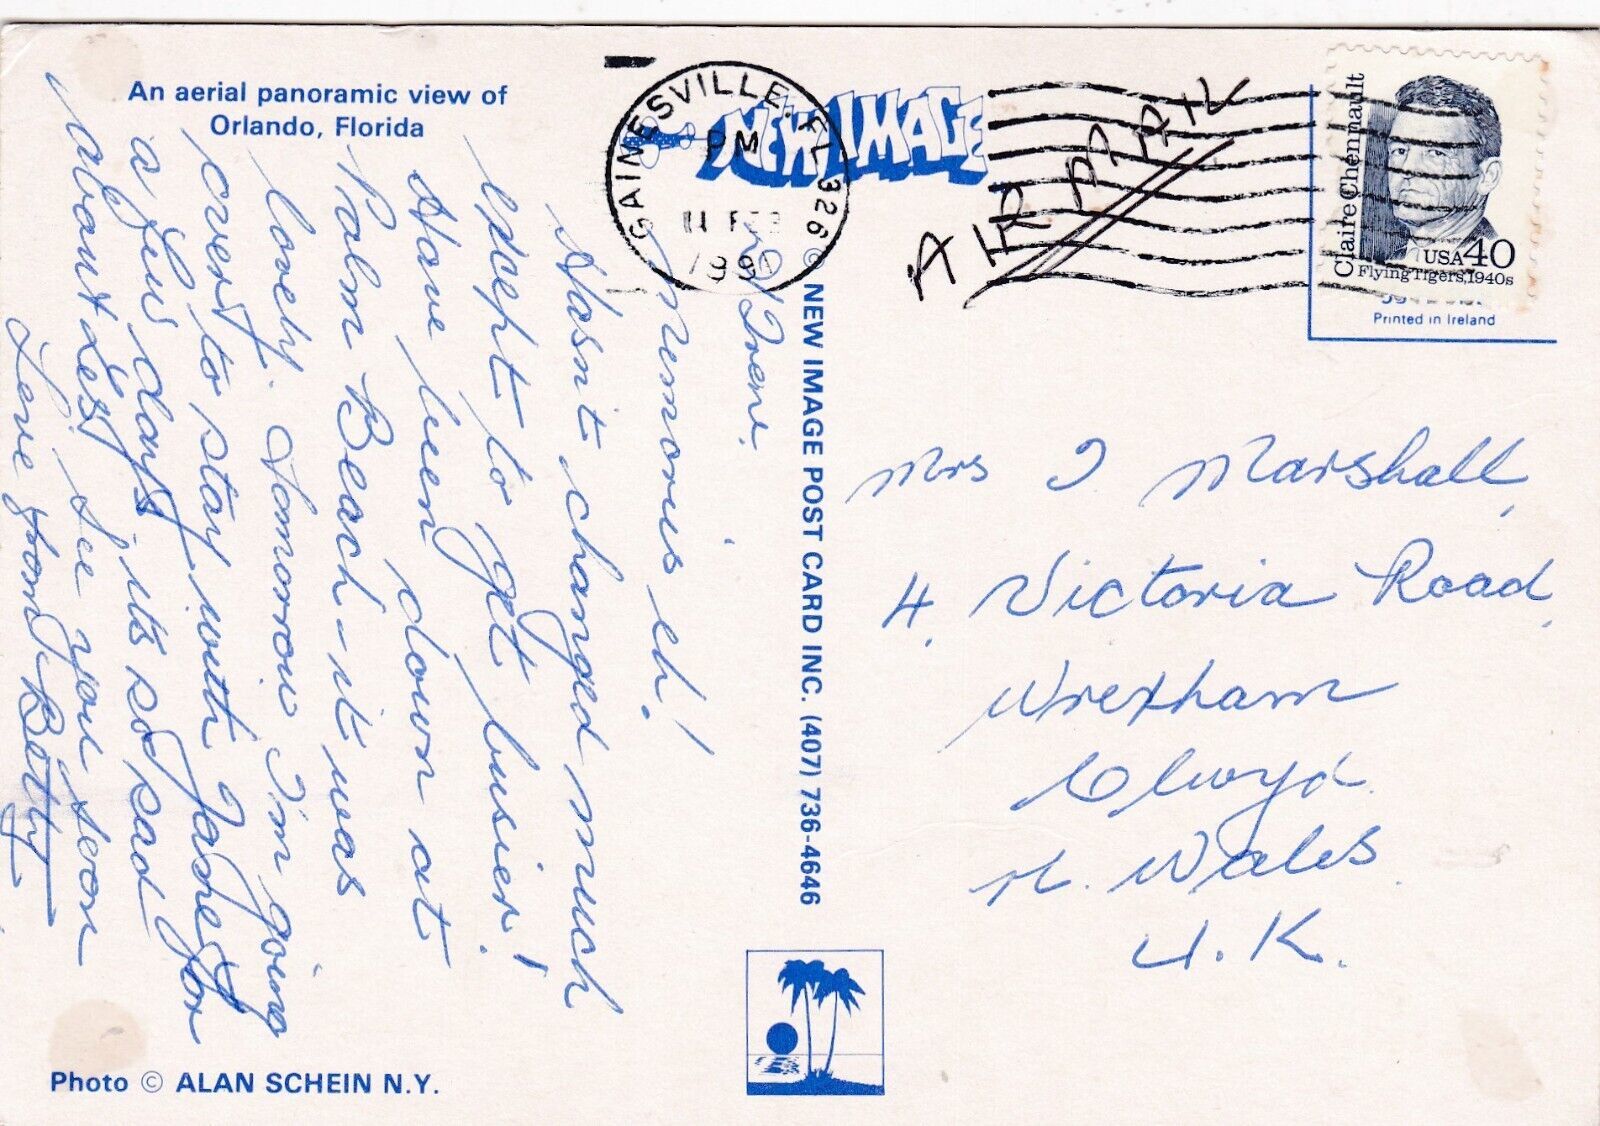 An aerial panoramic view of
Orlando, Florida
Irene.
Memories eh!
Hasn't changed much
except to get busier!
Have been down at
Palm Beach - it was
lovely. Tomorrow I'm going
over to stay with for
a few days, its so sad
about Les. See you soon
Love from Betty
Photo © ALAN SCHEIN N.Y.
NEW IMAGE
© NEW IMAGE POST CARD INC. (407) 736-4646
GAINESVILLE, FL 326
PM
FEB
199
AIR MAIL
Claire Chennault
USA 40
Flying Tigers, 1940s
Printed in Ireland
Mrs I Marshall,
4, Victoria Road,
Wrexham
Clwyd
N. Wales.
U.K.